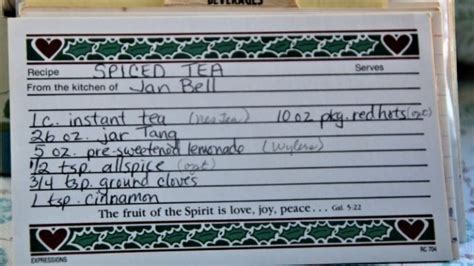 BEVERAGES
Recipe SPICED TEA Serves
From the kitchen of Jan Bell
1 c. instant tea (nestea) 10 oz pkg. red hots (opt)
26 oz. jar Tang
5 oz. pre-sweetened lemonade (Wylers)
1/2 tsp. allspice (opt)
3/4 tsp. ground cloves
1 tsp. cinnamon
The fruit of the Spirit is love, joy, peace . . . Gal. 5:22
EXPRESSIONS RC 704